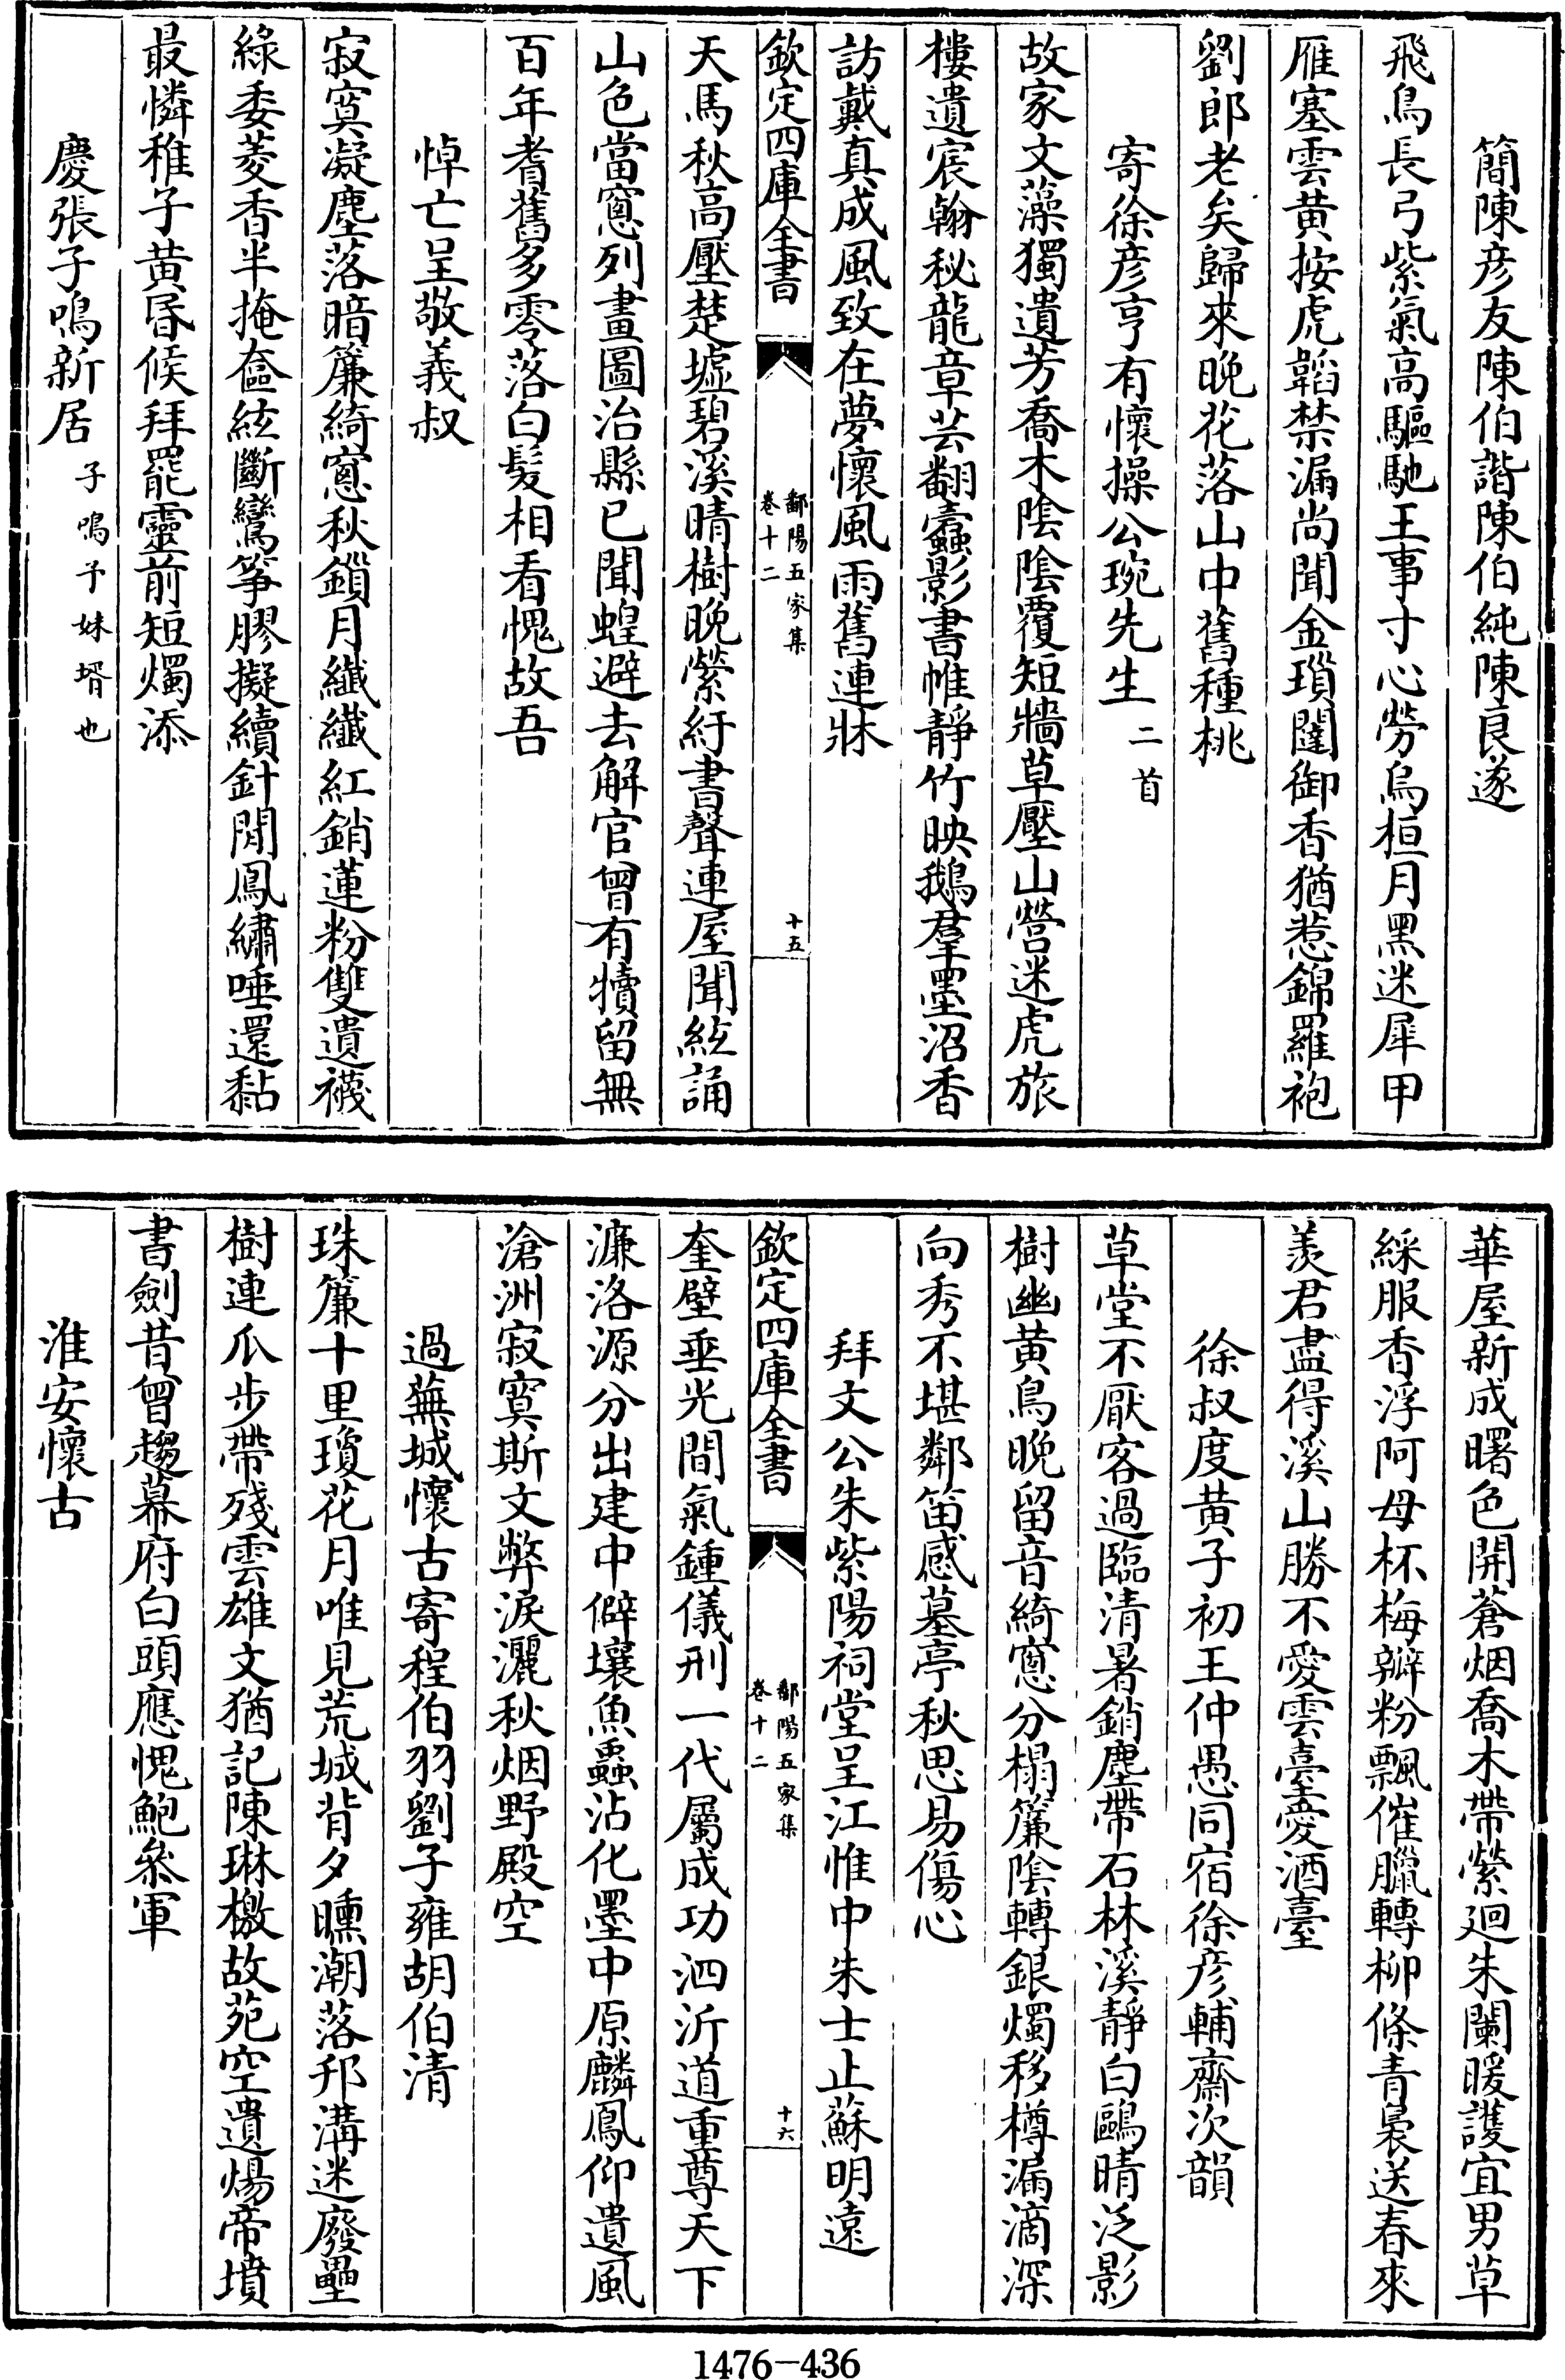 簡陳彦友陳伯諧陳伯純陳良遂
飛鳥長弓紫氣高驅馳王事寸心勞烏桓月黑迷犀甲
雁塞雲黄按虎韜禁漏尚聞金瑣闥御香猶惹錦羅袍
劉郎老矣歸來晚花落山中舊種桃
寄徐彦亨有懷操公琬先生二首
故家文藻獨遺芳喬木陰陰覆短牆草壓山營迷虎旅
樓遺宸翰秘龍章芸翻蠧影書帷静竹映鵝羣墨沼香
訪戴真成風致在夢懷風雨舊連牀
欽定四庫全書
鄱陽五家集
卷十二
十五
天馬秋高壓楚墟碧溪晴樹晚縈紆書聲連屋聞絃誦
山色當窻列畫圖治縣已聞蝗避去解官曾有犢留無
百年耆舊多零落白髮相看愧故吾
悼亡呈敬義叔
寂寞凝塵落暗簾綺窻秋鎖月纖纖紅銷蓮粉雙遺襪
綠委菱香半掩奩絃斷鸞筝膠擬續針閒鳳繡唾還黏
最憐稚子黄昏候拜罷靈前短燭添
慶張子鳴新居子鳴予妹壻也
華屋新成曙色開蒼烟喬木帶縈廻朱闌暖護宜男草
綵服香浮阿母杯梅瓣粉飄催臘轉柳條青裊送春來
羨君盡得溪山勝不愛雲臺愛酒臺
徐叔度黄子初王仲愚同宿徐彦輔齋次韻
草堂不厭客過臨清暑銷塵帶石林溪静白鷗晴泛影
樹幽黄鳥晚留音綺窻分榻簾陰轉銀燭移樽漏滴深
向秀不堪鄰笛感墓亭秋思易傷心
拜文公朱紫陽祠堂呈江惟中朱士止蘇明遠
欽定四庫全書
鄱陽五家集
卷十二
十六
奎壁垂光間氣鍾儀刑一代屬成功泗沂道重尊天下
濂洛源分出建中僻壤魚蟲沾化墨中原麟鳳仰遺風
滄洲寂寞斯文弊淚灑秋烟野殿空
過蕪城懷古寄程伯羽劉子雍胡伯清
珠簾十里瓊花月唯見荒城背夕曛潮落邗溝迷廢壘
樹連瓜步帶殘雲雄文猶記陳琳檄故苑空遺煬帝墳
書劍昔曾趨幕府白頭應愧鮑叅軍
淮安懷古
1476-436